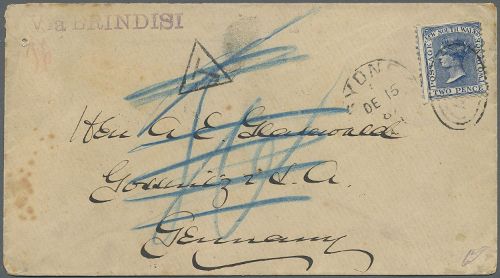 Via BRINDISI
POSTAGE NEW SOUTH WALES
TWO PENCE
SYDNEY
DE 15
Herr A. E.
Gossnitz i S. A.
Germany